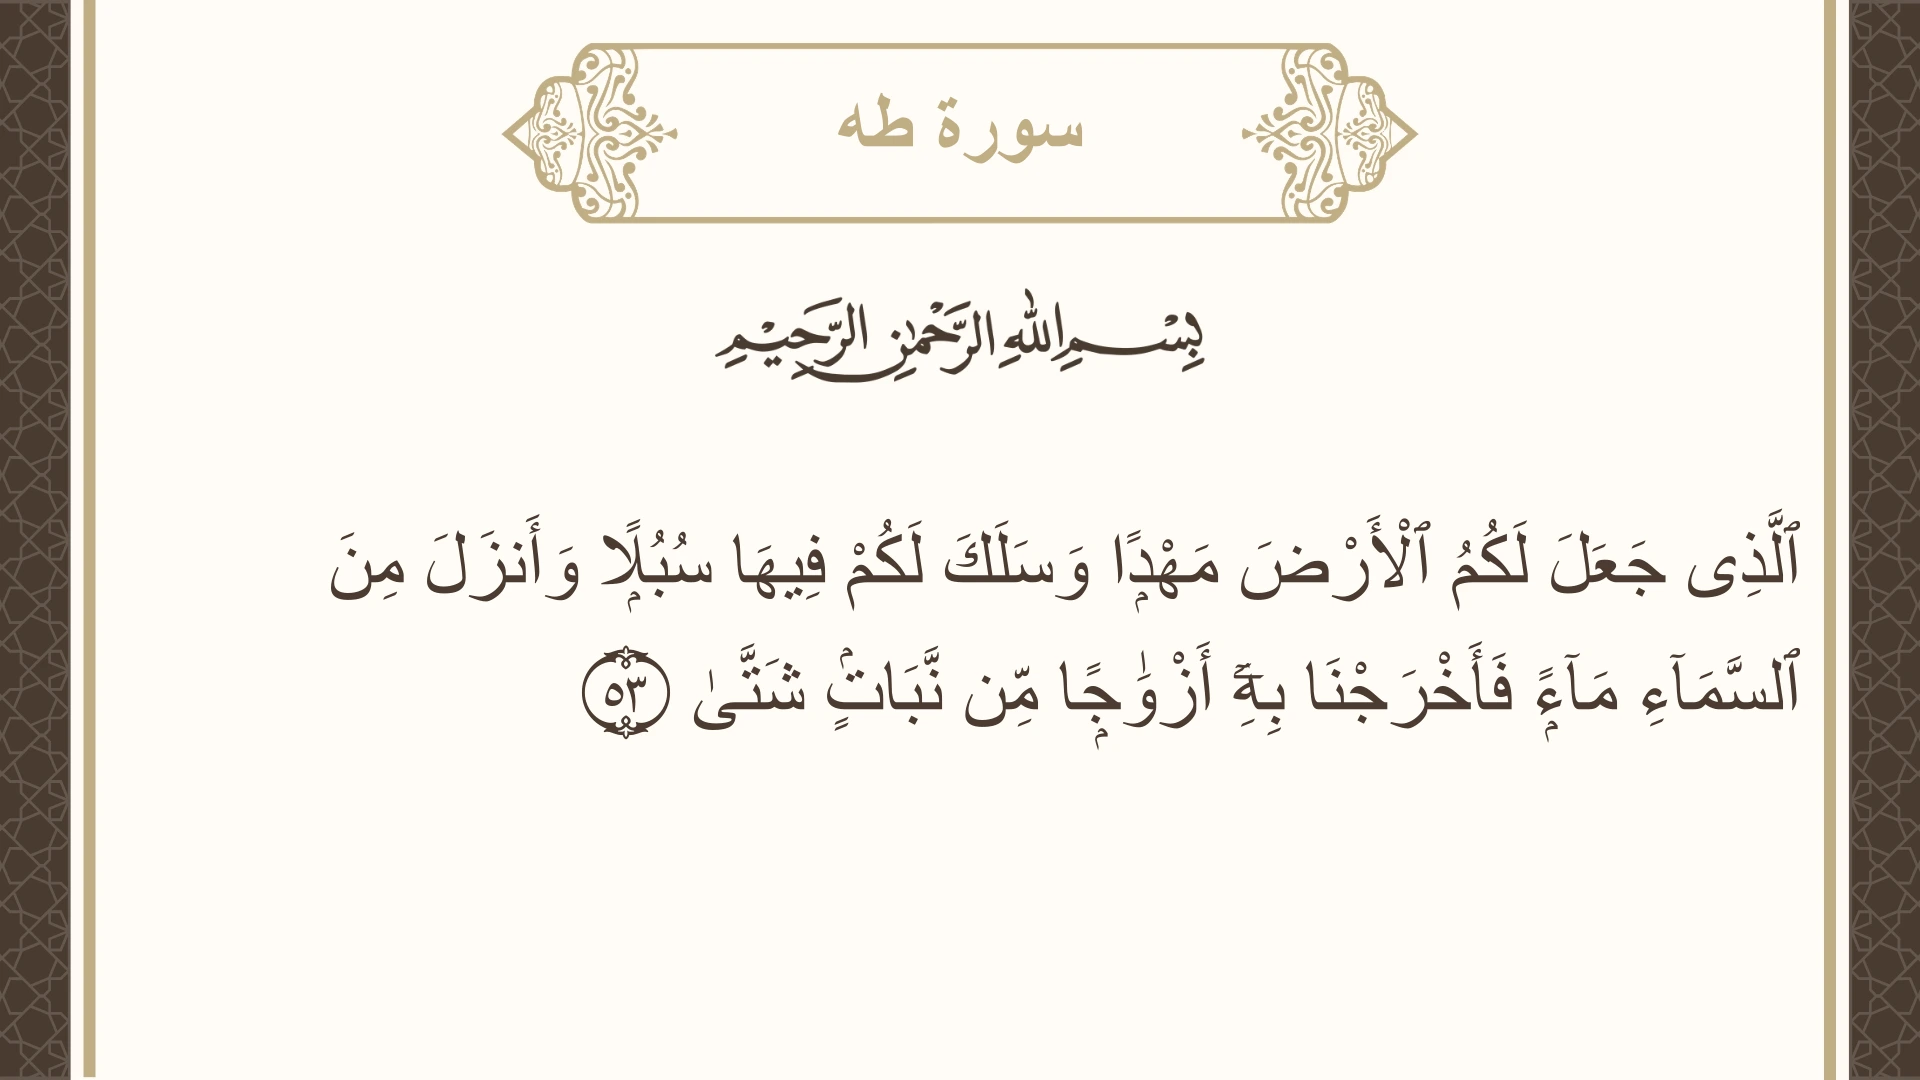 سورة طه
بِسْمِ اللهِ الرَّحْمٰنِ الرَّحِيْمِ
ٱلَّذِى جَعَلَ لَكُمُ ٱلْأَرْضَ مَهْدًۭا وَسَلَكَ لَكُمْ فِيهَا سُبُلًۭا وَأَنزَلَ مِنَ
ٱلسَّمَآءِ مَآءًۭ فَأَخْرَجْنَا بِهِۦٓ أَزْوَٰجًۭا مِّن نَّبَاتٍۢ شَتَّىٰ ٥٣